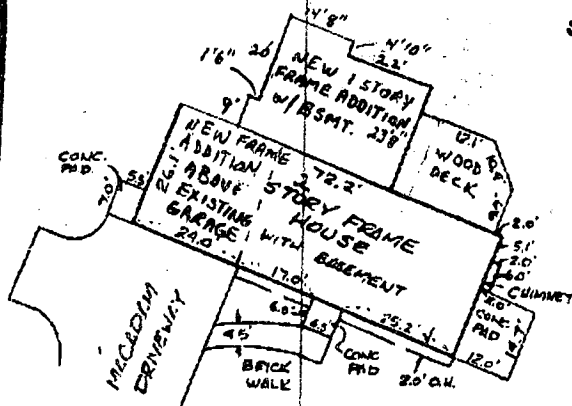 14'8"
4'10"
2.2'
26'
1'6"
9'
NEW 1 STORY
FRAME ADDITION
W/ BSMT.
23'8"
12.1'
WOOD
DECK
NEW FRAME
ADDITION
ABOVE
EXISTING
GARAGE
72.2'
2 STORY FRAME
HOUSE
WITH BASEMENT
26.1'
24.0
17.0'
25.2'
CONC.
PAD
5.5'
7.0'
2.0'
5.1'
2.0'
6.0'
CHIMNEY
CONC
PAD
14.7'
12.0'
2.0' O.H.
4.5'
BRICK
WALK
CONC
PAD
MACADAM
DRIVEWAY